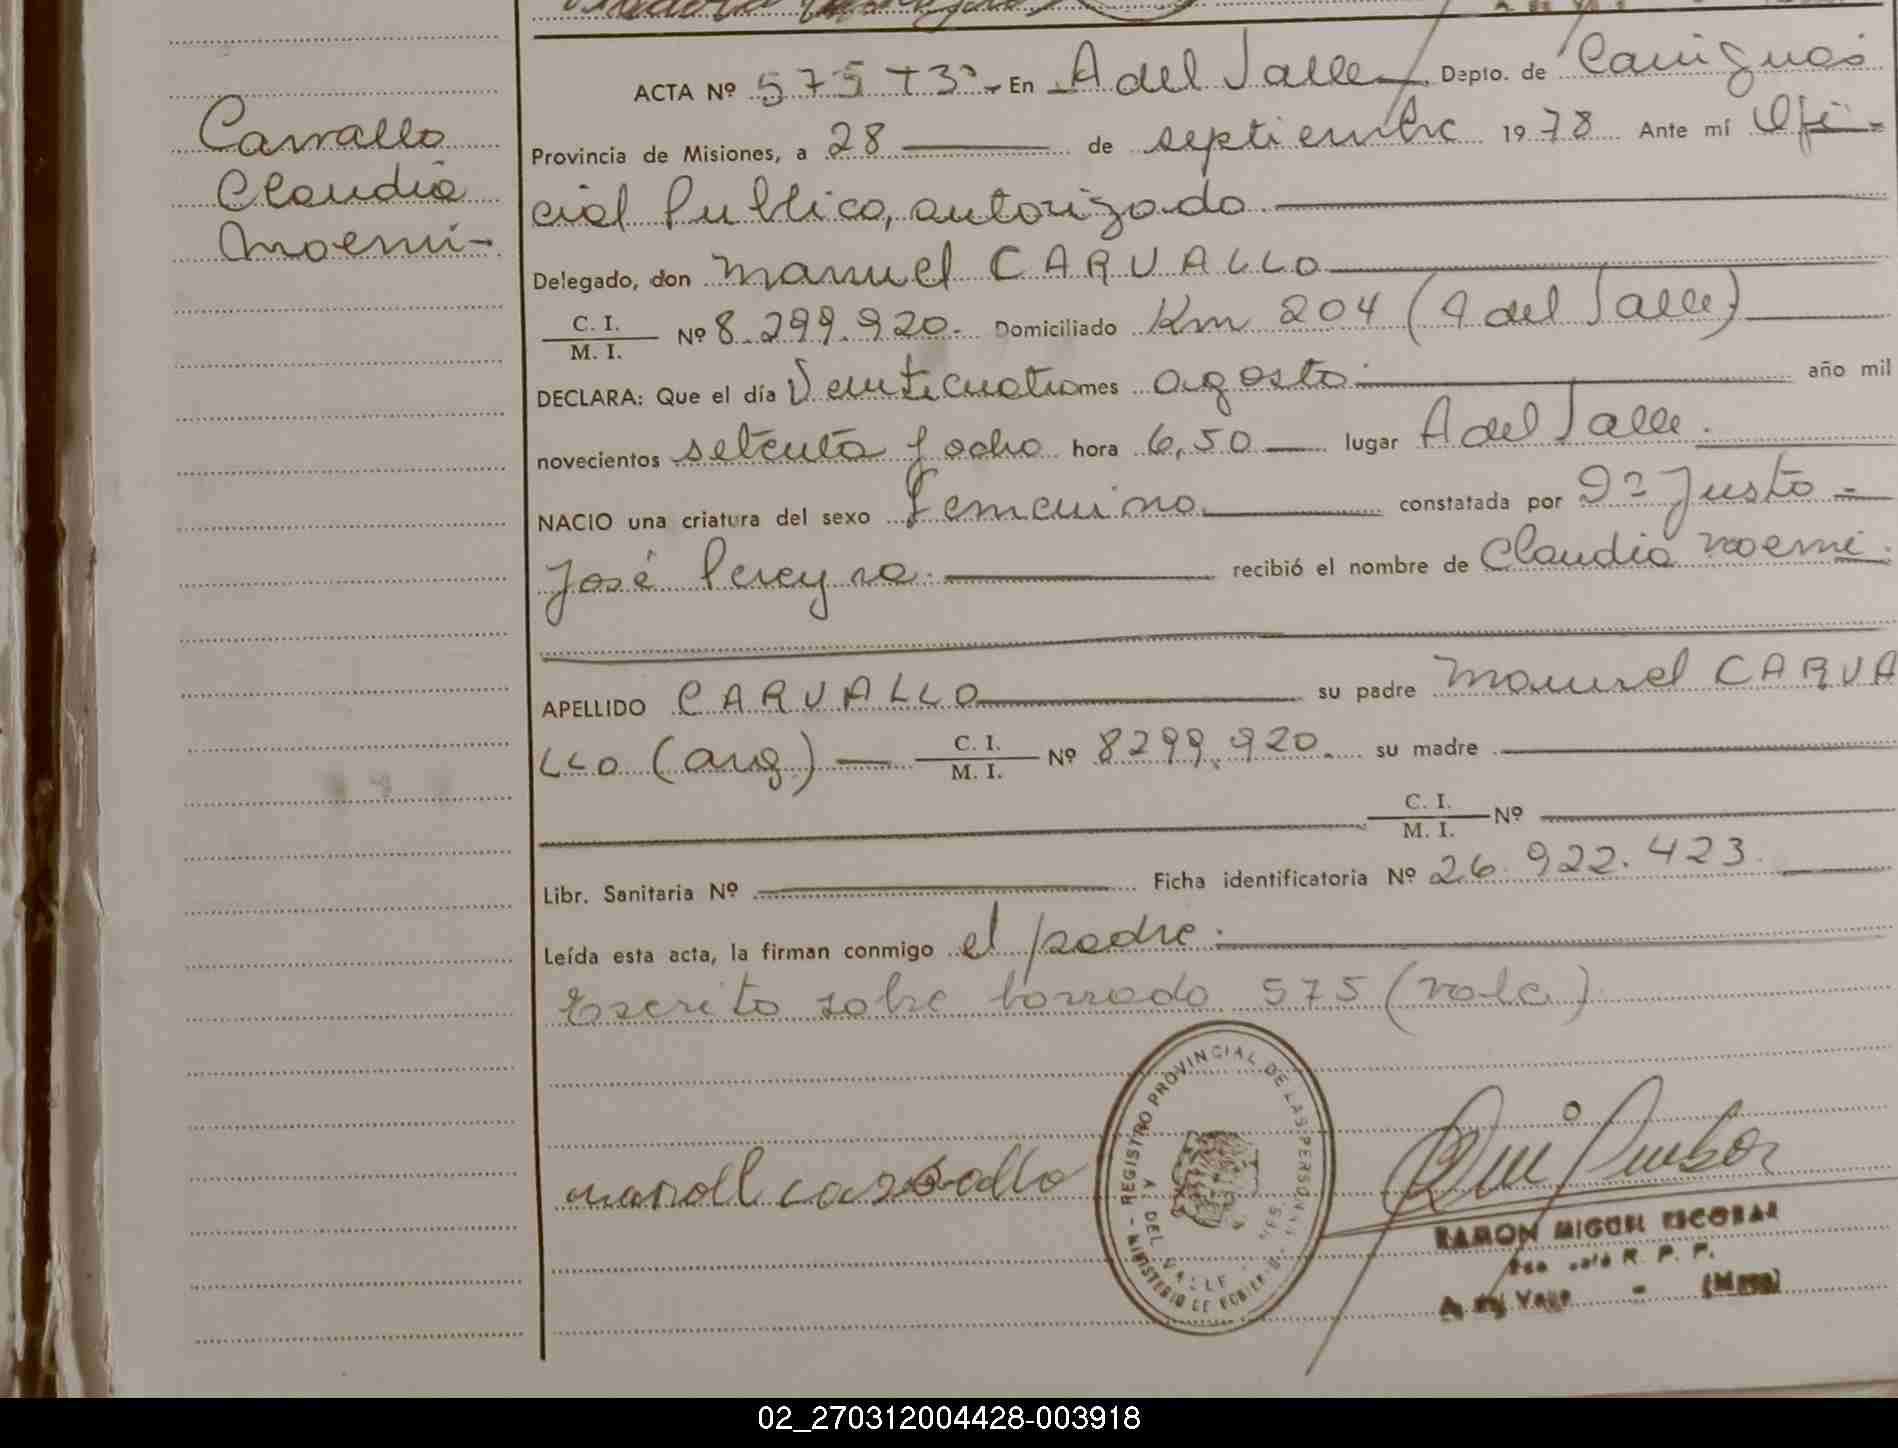 Carvallo
Claudia
Noemi-.
ACTA Nº 575 T3º - En A del Valle Depto. de Cainguás
Provincia de Misiones, a 28 de septiembre 1978 Ante mí Ofi-
cial Público, autorizado
Delegado, don Manuel CARVALLO
C. I.
M. I. Nº 8.299.920. Domiciliado Km 204 (A del Valle)
DECLARA: Que el día Veinticuatro mes agosto año mil
novecientos setenta y ocho hora 6,50 lugar A del Valle.
NACIO una criatura del sexo Femenino constatada por Dº Justo
José Pereyra. recibió el nombre de Claudia Noemi.
APELLIDO CARVALLO su padre Manuel CARVA
LLO (arg.) C. I.
M. I. Nº 8299.920. su madre
C. I.
M. I. Nº
Libr. Sanitaria Nº Ficha identificatoria Nº 26.922.423.
Leída esta acta, la firman conmigo el padre.
Escrito sobre borrado 575 (vale)
REGISTRO PROVINCIAL DE LAS PERSONAS
MINISTERIO DE GOBIERNO
DEL VALLE
RAMON MIGUEL ESCOBAR
R. P. P.
A. del Valle - (Mnes)
02_270312004428-003918